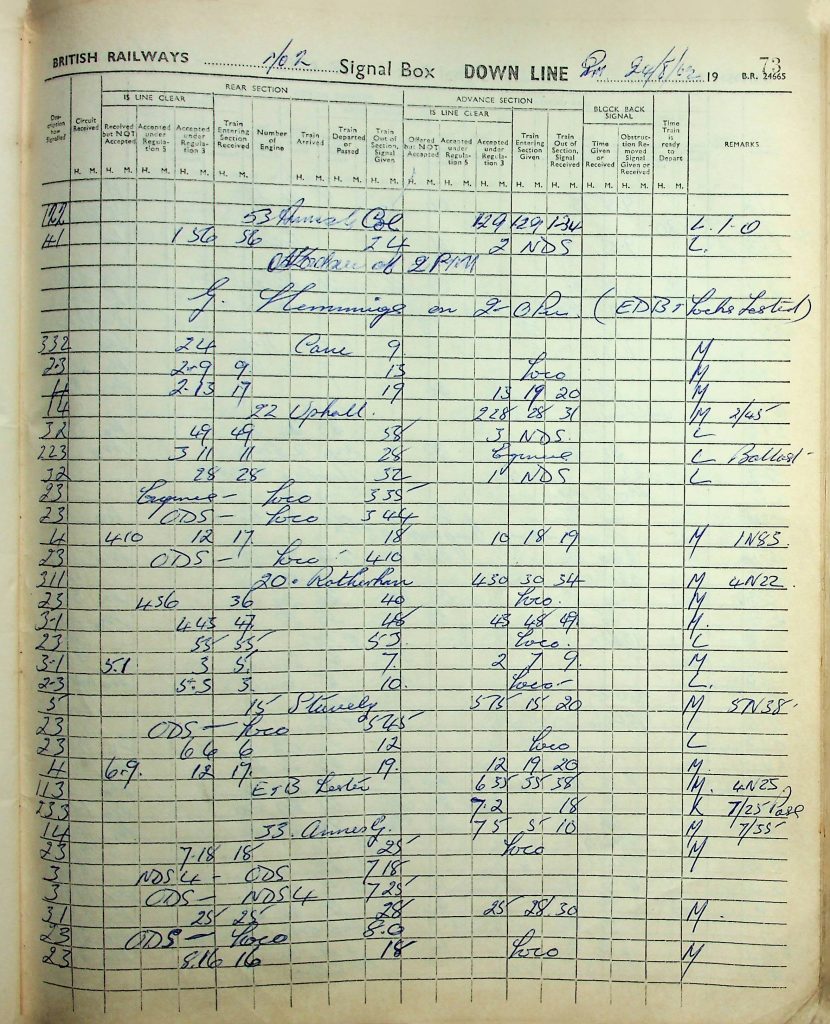 BRITISH RAILWAYS No 2 Signal Box DOWN LINE 24/5/62 19 73
B.R. 24665
REAR SECTION ADVANCE SECTION
IS LINE CLEAR IS LINE CLEAR BLOCK BACK SIGNAL
Description how Signalled Circuit Received Received but NOT Accepted Accepted under Regulation 5 Accepted under Regulation 3 Train Entering Section Received Number of Engine Train Arrived Train Departed or Passed Train Out of Section, Signal Given Offered but NOT Accepted Accepted under Regulation 5 Accepted under Regulation 3 Train Entering Section Given Train Out of Section, Signal Received Time Given or Received Obstruction Removed Signal Given or Received Time Train is ready to Depart REMARKS
H. M. H. M. H. M. H. M. H. M. H. M. H. M. H. M. H. M. H. M. H. M. H. M. H. M. H. M. H. M. H. M.
122 53 Col 129 129 1-34 L. 1-0
41 1 56 56 2 4 2 NDS L.
2 P.M
G. Hemmings on 2-0 Pm. (EDB + Locks Tested)
332 2 4 Cane 9 M
2-3 2-9 9 13 Loco M
4 2-13 17 19 13 19 20 M
14 22 Uphall. 228 28 31 M 2/45
32 49 49 58 3 NDS. L
223 3 11 11 28 Engine L Ballast
32 28 28 32 1 NDS L
23 Engine - Loco 3 35
23 ODS - Loco 3 44
4 410 12 17 18 10 18 19 M 1N83.
23 ODS - Loco 410
311 20. Rotherham 430 30 34 M 4N22.
23 436 36 40 Loco. M
3-1 4 43 47 48 43 48 49. M.
23 55 55 5 3. Loco. L
3-1 5.1 3 5. 7. 2 7 9. M
2-3 5.5 5. 10. Loco- L.
5 15 Stavely 515 15 20 M 5N38
23 ODS - Loco 545
23 6 6 6 12 Loco L
4 6-9. 12 17. 19. 12 19. 20 M.
113 E+B Lester 635 35 38 M. 4N25.
233 7.2 18 K 7/25 Pass
14 33. Annes G. 7 5 5 10 M 7/35
23 7.18 18 25 Loco M
3 NDS 4 - ODS 7 18
3 ODS - NDS 4 7 25
31 25 25 28 25 28 30 M.
23 ODS - Loco 8.0
23 8.16 16 18 Loco M